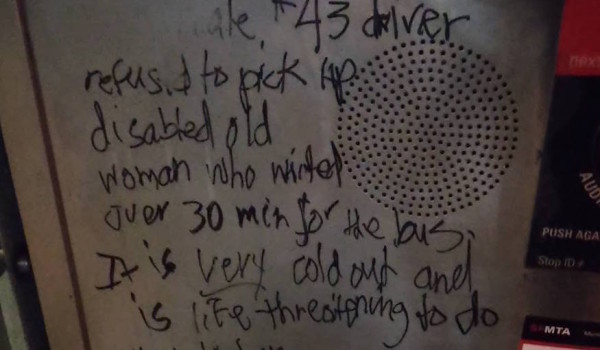 #43 driver
refused to pick up
disabled old
woman who waited
over 30 min for the bus.
It is very cold out and
is life-threatening to do
next
AUD
PUSH AGA
Stop ID #
SFMTA